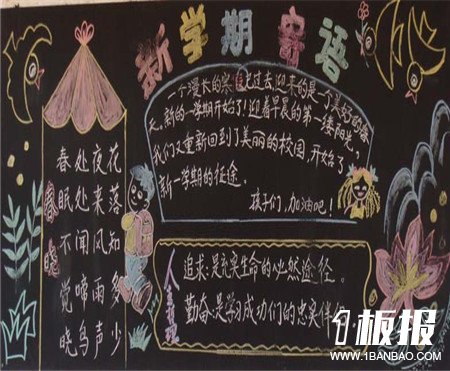 新学期寄语
春晓
春眠不觉晓
处处闻啼鸟
夜来风雨声
花落知多少
一个漫长的寒假已过去,迎来的是一个美好的春
天。新的一学期开始了!迎着早晨的第一缕阳光,
我们又重新回到了美丽的校园,开始了
新一学期的征途。
孩子们,加油吧!
人生
追求:是充实生命的必然途径。
勤奋:是学习成功们的忠实伴
1板报
WWW.1BANBAO.COM